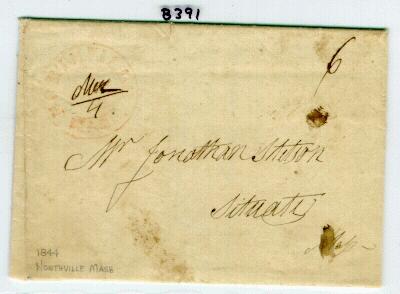 8391
6
4
Mr Jonathan Stetson
Situate
Mass
1844
NORTHVILLE MASS